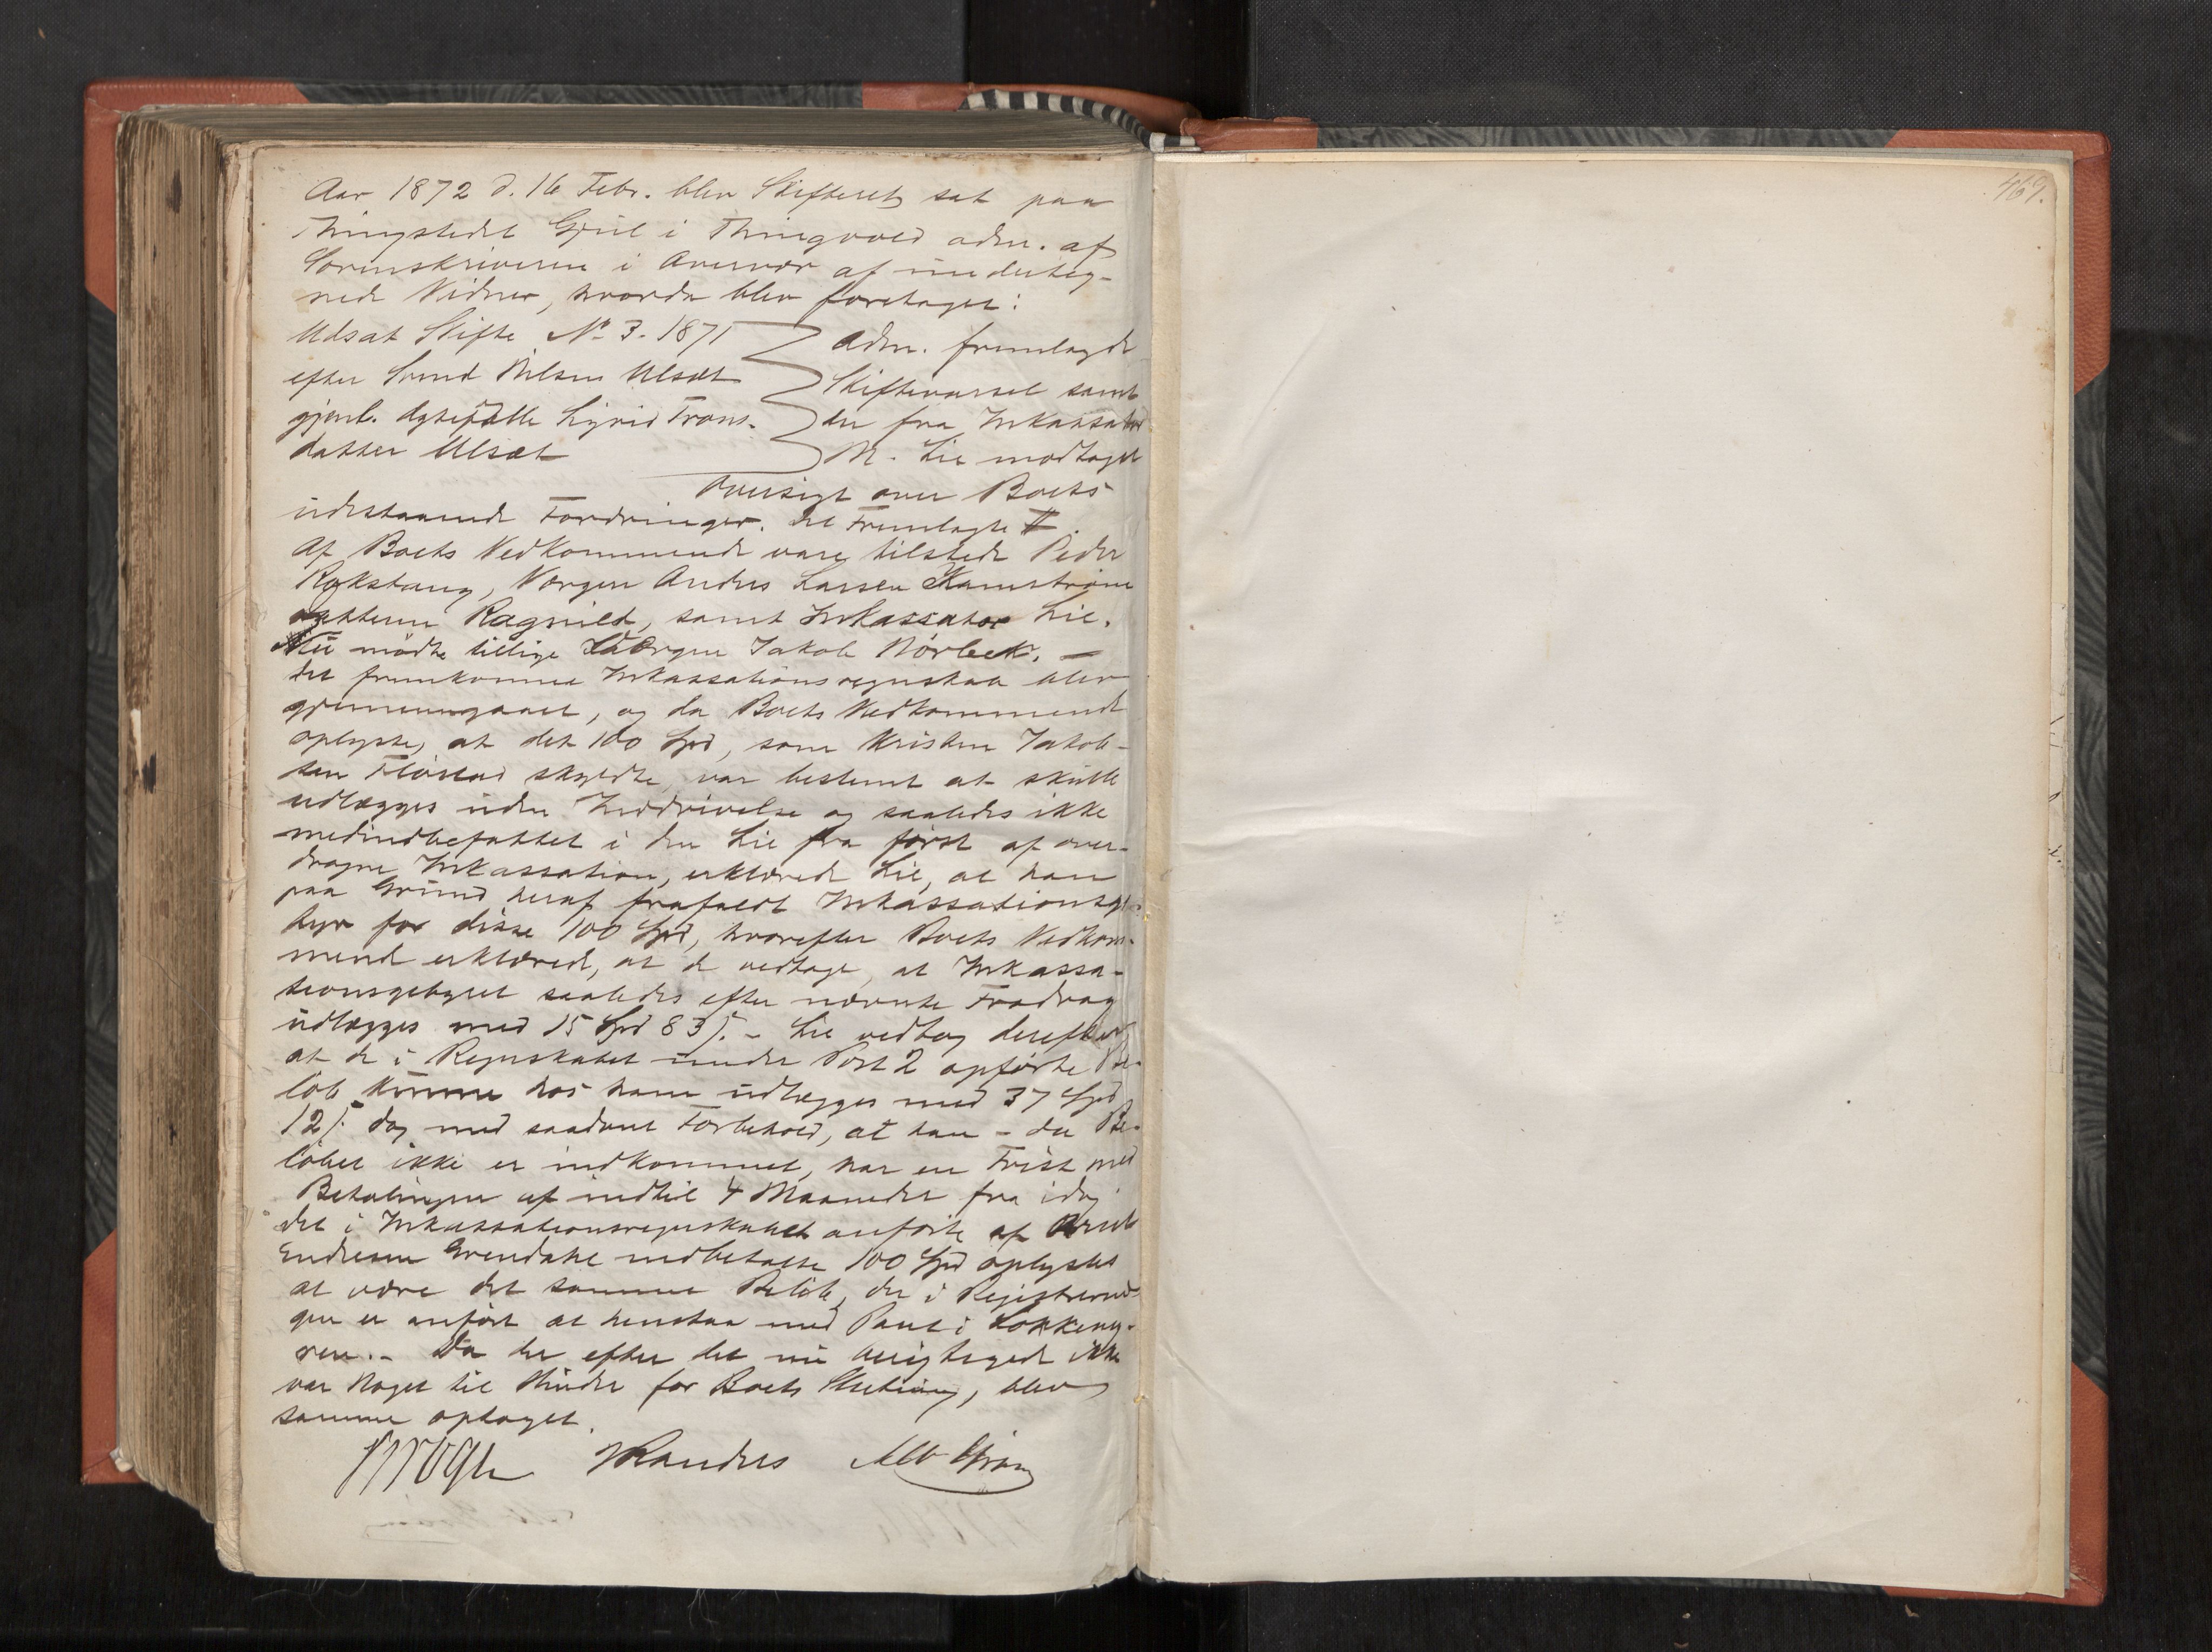 Aar 1872 d. 16 Febr. blev Skifteret sat paa
Thingstedet Gjul i Thingvold adm. af
Sorenskriveren i af underteg-
nede Vidner, hvorda blev foretaget:
Udsat Skifte No 3. 1871
efter Svend Nilsen Ulsæt
gjenl. Ægtefælle Sigrid Trons-
datter Ulsæt
Adm. fremlagde
Skiftevarsel samt
den fra Inkassator
M. Lie modtagne
Oversigt over Boets
udestaaende Fordringer. Det Fremlagte #
Af Boets Vedkommende vare tilstede Peder
Rykstang, Værgen Anders Larsen
Datteren Ragnild, samt Inkassator Lie.
Nu mødte tillige Værgen Jakob Nørbek. —
Det fremkomne Inkassationsregnskab blev
gjennemgaaet, og da Boets Vedkommende
oplyste, at det 100 Spd, som Kristen Jakob-
sen skyldte, var bestemt at skulle
udlægges uden Inddrivelse og saaledes ikke
medindbefattet i den Lie fra først af over-
dragne Inkassation, erklærede Lie, at han
paa Grund heraf frafaldt Inkassationsge-
byr for disse 100 Spd, hvorefter Boets Vedkom-
mende erklærede, at de vedtage, at Inkassa-
tionsgebyret saaledes efter nævnte Fradrag
udlægges med 15 Spd 83 s. - Lie vedtog derefter
at de i Regnskabet under Post 2 opførte Be-
løb kunne hos ham udlægges med 37 Spd
12 s. dog med saadant Forbehold, at han - da Be-
løbet ikke er indkommet, har en Frist med
Betalingen af indtil 4 Maaneder fra idag
Det i Inkassationsregnskabet anførte af
Endresen Grendahl indbetalte 100 Spd oplystes
at være det samme Beløb, der i Registrerin-
gen er anført at henstaa med Pant i
Da der efter det nu berigtigede ikke
var Noget til Hinder for Boets Slutning, blev
samme optaget.
Krogh JRanders
469.